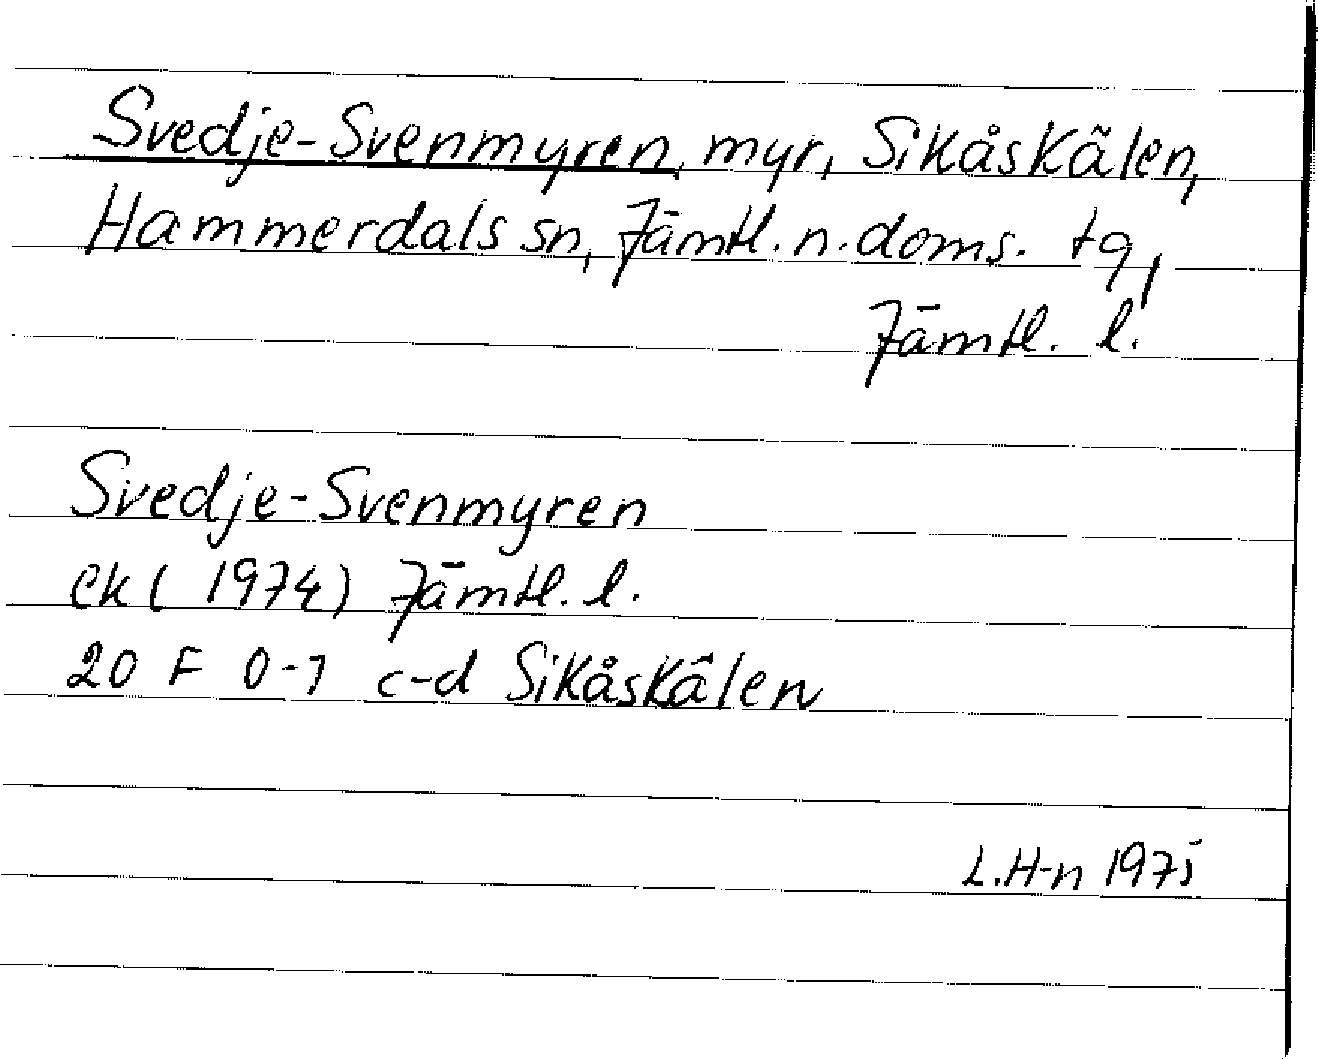 Svedje-Svenmyren, myr, Sikåskälen,
Hammerdals sn, Jämtl. n. doms. tg,
Jämtl. l.
Svedje-Svenmyren
ek (1974) Jämtl. l.
20 F 0-1 c-d Sikåskälen
L.H-n 1975